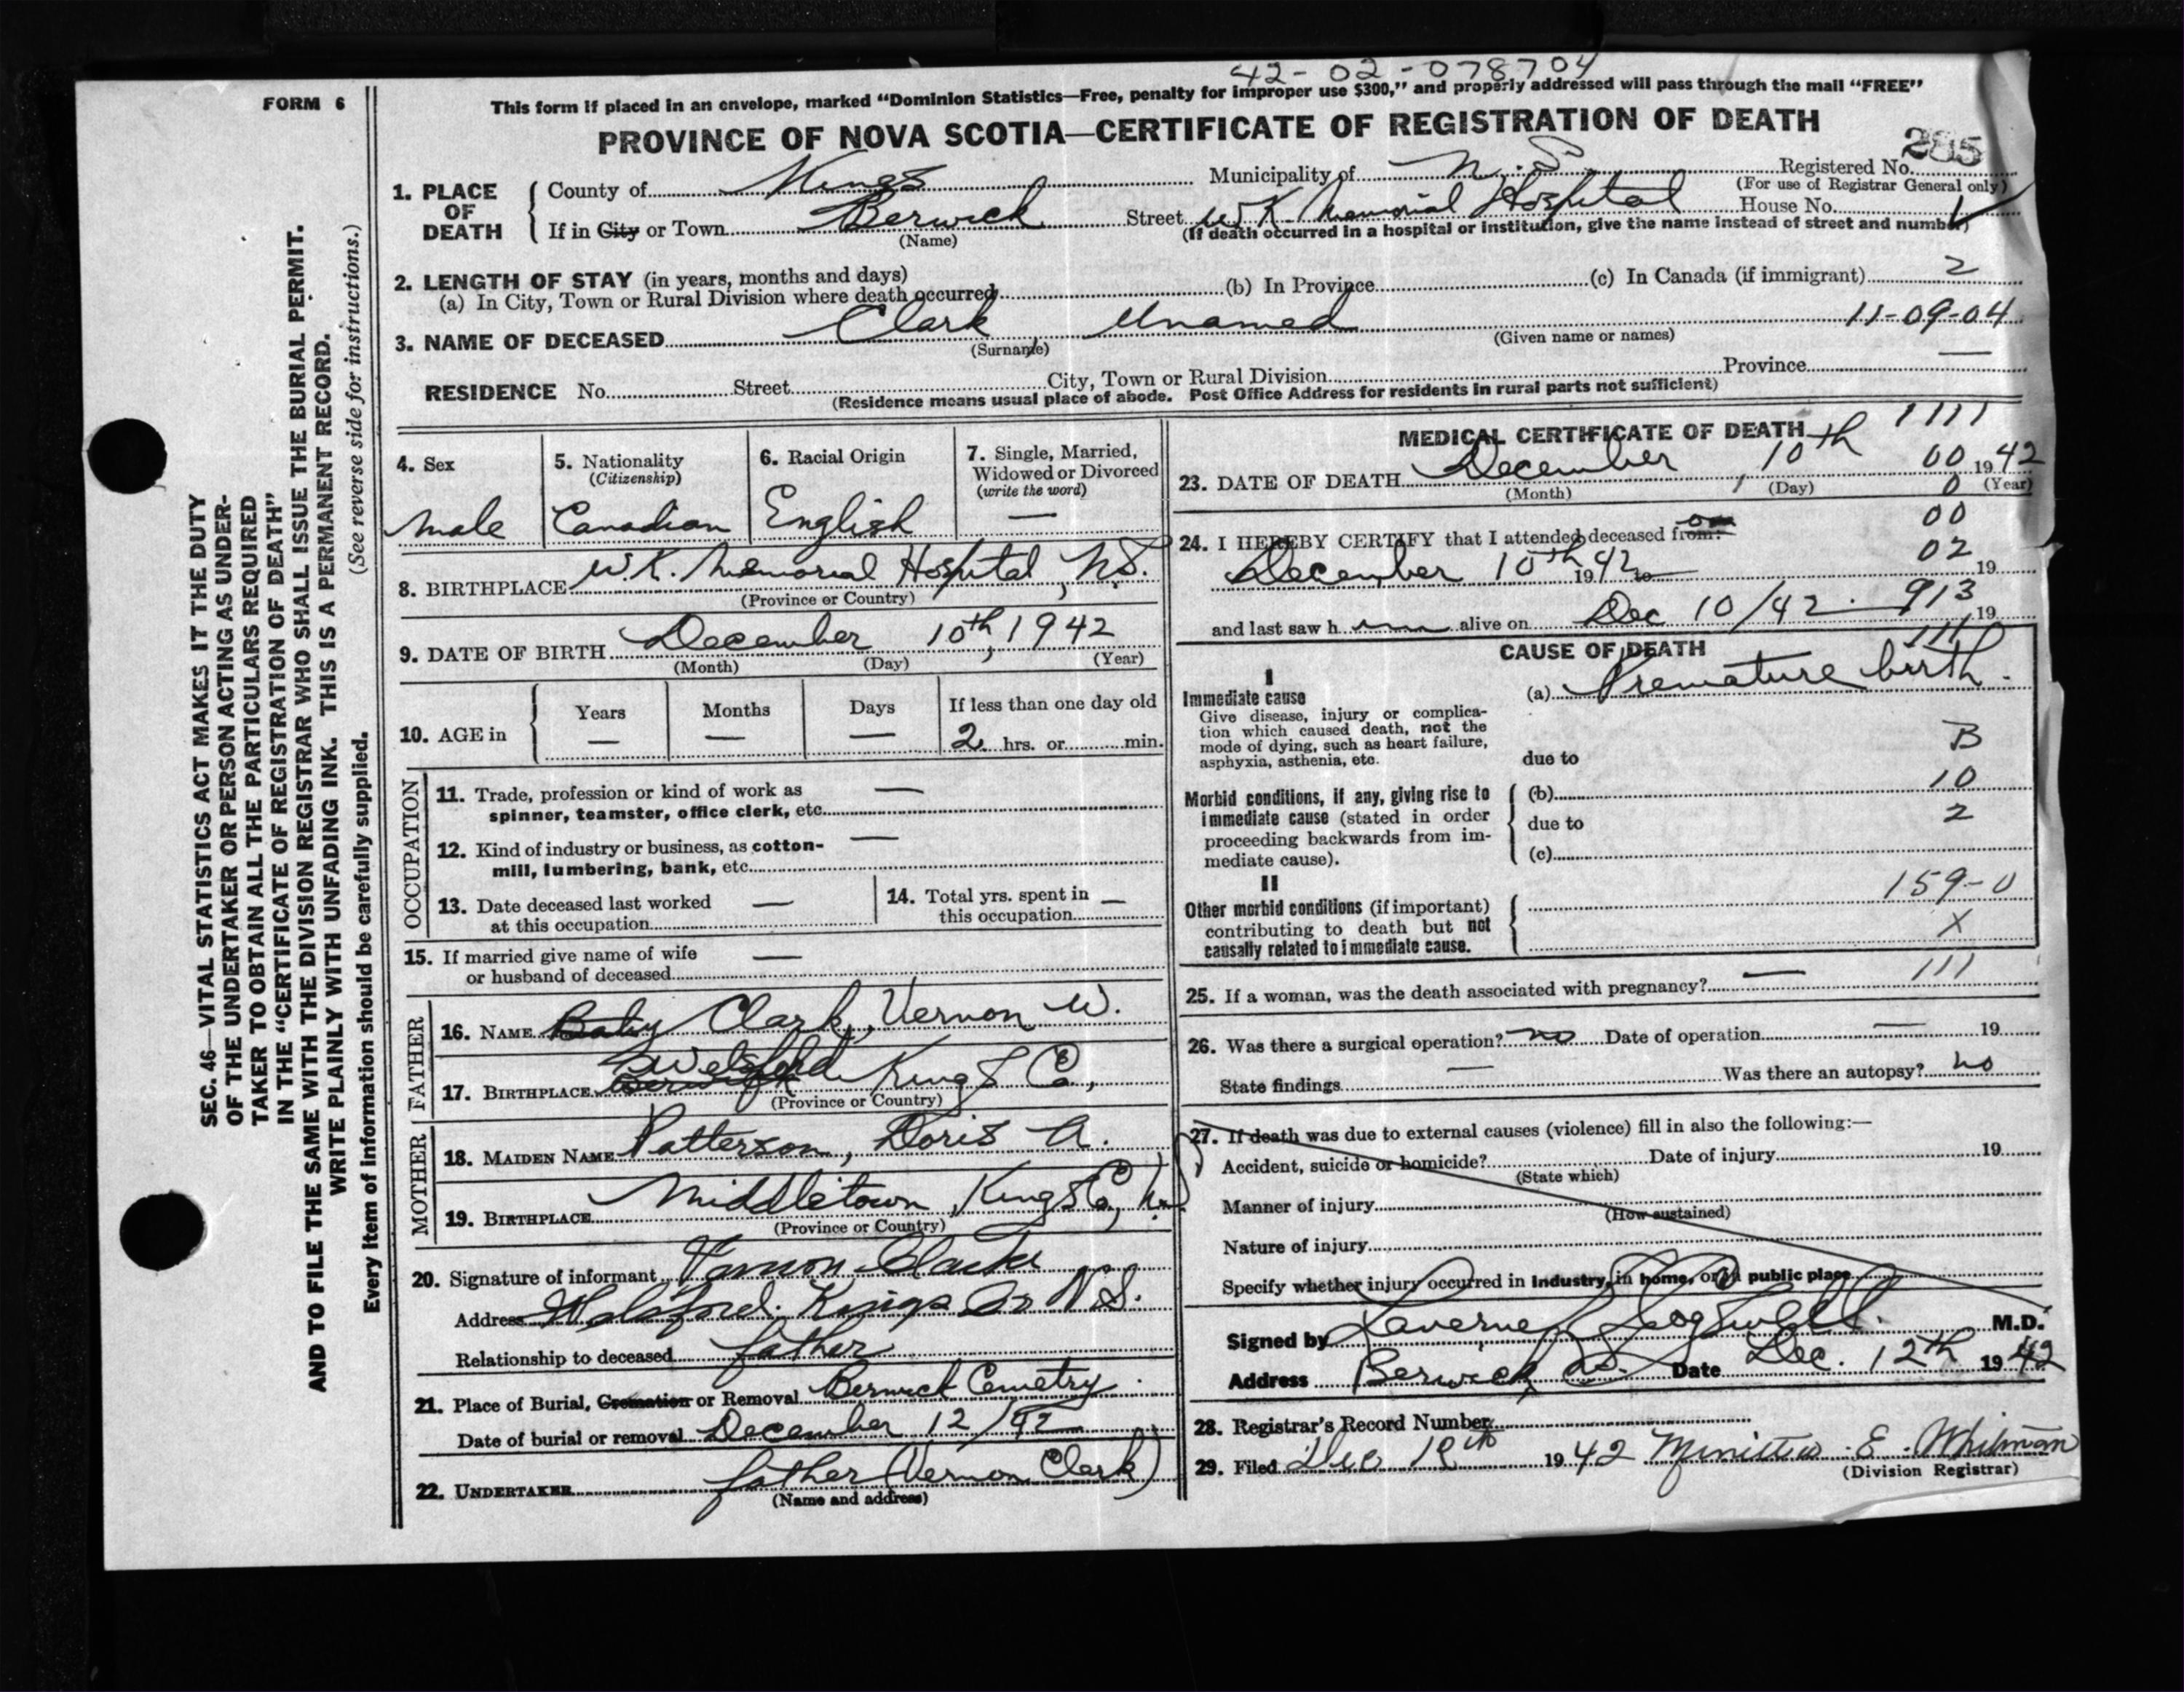 42-02-078704
FORM 6
This form if placed in an envelope, marked “Dominion Statistics—Free, penalty for improper use $300,” and properly addressed will pass through the mail “FREE”
PROVINCE OF NOVA SCOTIA—CERTIFICATE OF REGISTRATION OF DEATH
285
SEC. 46—VITAL STATISTICS ACT MAKES IT THE DUTY
OF THE UNDERTAKER OR PERSON ACTING AS UNDER-
TAKER TO OBTAIN ALL THE PARTICULARS REQUIRED
IN THE “CERTIFICATE OF REGISTRATION OF DEATH”
AND TO FILE THE SAME WITH THE DIVISION REGISTRAR WHO SHALL ISSUE THE BURIAL PERMIT.
WRITE PLAINLY WITH UNFADING INK. THIS IS A PERMANENT RECORD.
(See reverse side for instructions.)
Every item of information should be carefully supplied.
1. PLACE OF DEATH
County of Kings Municipality of N.S. Registered No.
(For use of Registrar General only)
If in City or Town Berwick Street W.K. Memorial Hospital House No.
(Name) (If death occurred in a hospital or institution, give the name instead of street and number)
2. LENGTH OF STAY (in years, months and days)
(a) In City, Town or Rural Division where death occurred (b) In Province (c) In Canada (if immigrant) 2
3. NAME OF DECEASED Clark Unamed 11-09-04
(Surname) (Given name or names)
RESIDENCE No. Street City, Town or Rural Division Province —
(Residence means usual place of abode. Post Office Address for residents in rural parts not sufficient)
4. Sex Male
5. Nationality (Citizenship) Canadian
6. Racial Origin English
7. Single, Married, Widowed or Divorced (write the word) —
8. BIRTHPLACE W.K. Memorial Hospital, N.S.
(Province or Country)
9. DATE OF BIRTH December 10th, 1942
(Month) (Day) (Year)
10. AGE in Years — Months — Days — If less than one day old 2 hrs. or min.
OCCUPATION
11. Trade, profession or kind of work as —
spinner, teamster, office clerk, etc.
12. Kind of industry or business, as cotton- —
mill, lumbering, bank, etc.
13. Date deceased last worked —
at this occupation
14. Total yrs. spent in —
this occupation
15. If married give name of wife —
or husband of deceased
FATHER
16. NAME Baby Clark, Vernon W.
17. BIRTHPLACE Berwick Welsford Kings Co,
(Province or Country)
MOTHER
18. MAIDEN NAME Patterson, Doris A.
19. BIRTHPLACE Middletown, Kings Co,
(Province or Country)
20. Signature of informant Vernon Clarke
Address Welsford. Kings Co N.S.
Relationship to deceased father
21. Place of Burial, Cremation or Removal Berwick Cemetry.
Date of burial or removal December 12/42
22. UNDERTAKER father (Vernon Clark)
(Name and address)
MEDICAL CERTIFICATE OF DEATH 1111
23. DATE OF DEATH December 10th 00 1942
(Month) (Day) 0 (Year)
00
24. I HEREBY CERTIFY that I attended deceased from: on
02
December 10th 1942 to 19
and last saw h im alive on Dec 10/42. 913 19
111
CAUSE OF DEATH
I
Immediate cause (a) Premature birth.
Give disease, injury or complica-
tion which caused death, not the
mode of dying, such as heart failure,
asphyxia, asthenia, etc. due to B
Morbid conditions, if any, giving rise to (b) 10
immediate cause (stated in order due to 2
proceeding backwards from im-
mediate cause). (c)
II
Other morbid conditions (if important) 159-0
contributing to death but not X
causally related to immediate cause.
25. If a woman, was the death associated with pregnancy? — 111
26. Was there a surgical operation? no Date of operation — 19
State findings — Was there an autopsy? no
27. If death was due to external causes (violence) fill in also the following:—
Accident, suicide or homicide? Date of injury 19
(State which)
Manner of injury
(How sustained)
Nature of injury
Specify whether injury occurred in industry, in home, or in public place
Signed by Laverne Cogswell. M.D.
Address Berwick Date Dec. 12th 1942
28. Registrar's Record Number
29. Filed Dec 12th 1942 E. Whitman
(Division Registrar)